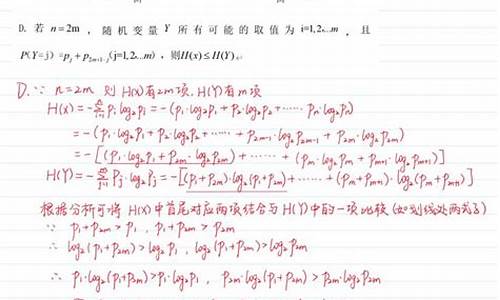 D. 若 n=2m ，随机变量 Y 所有可能的取值为 i=1,2...m ，且
P(Y=j) =p_j+p_{2m+1-j}(j=1,2...m) ，则H(x)≤H(Y).
D.∵ n=2m 则 H(X)有2m项, H(Y)有m项
H(X)=-∑p_i log_2 p_i=-(p_1·log_2 p_1+p_2·log_2 p_2+······ p_n·log_2 p_n)
=-(p_1·log_2 p_1+p_2·log_2 p_2+······+p_{2m-1}·log_2 p_{2m-1}+p_{2m}·log_2 p_{2m})
=-[(p_1·log_2 p_1+p_{2m}·log_2 p_{2m})+······+(p_m·log_2 p_m+p_{m+1}·log_2 p_{m+1})]
H(Y)=-∑p_j·log_2 p_j=-[(p_1+p_{2m})·log_2(p_1+p_{2m})+······+(p_m+p_{m+1})·log_2(p_m+p_{m+1})]
根据分析可将 H(X)中首尾对应两项结合与H(Y)中的一项比较(如划线处两式)
∵ p_1+p_{2m}>p_1 , p_1+p_{2m}>p_{2m}
∴ log_2(p_1+p_{2m})>log_2 p_1 , log_2(p_1+p_{2m})>log_2 p_{2m}
∴ p_1·log_2(p_1+p_{2m})>p_1·log_2 p_1 , p_{2m}·log_2(p_1+p_{2m})>p_{2m}·log_2 p_{2m}